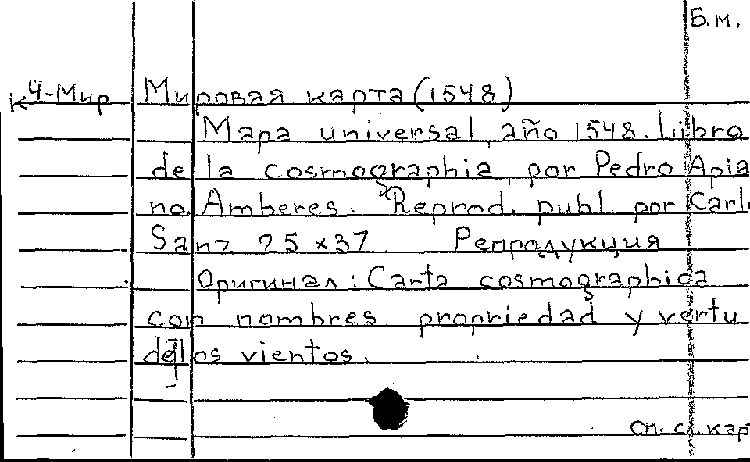 Б.м.
К4-Мир Мировая карта (1548)
Mapa universal, año 1548. Libro
de la cosmographia, por Pedro Apia
no. Amberes. Reprod. publ. por Carl
Sanz. 25 x 37. Репродукция
Оригинал: Carta cosmographica
con nombres propriedad y vertu
de los vientos.
см. сл. кар